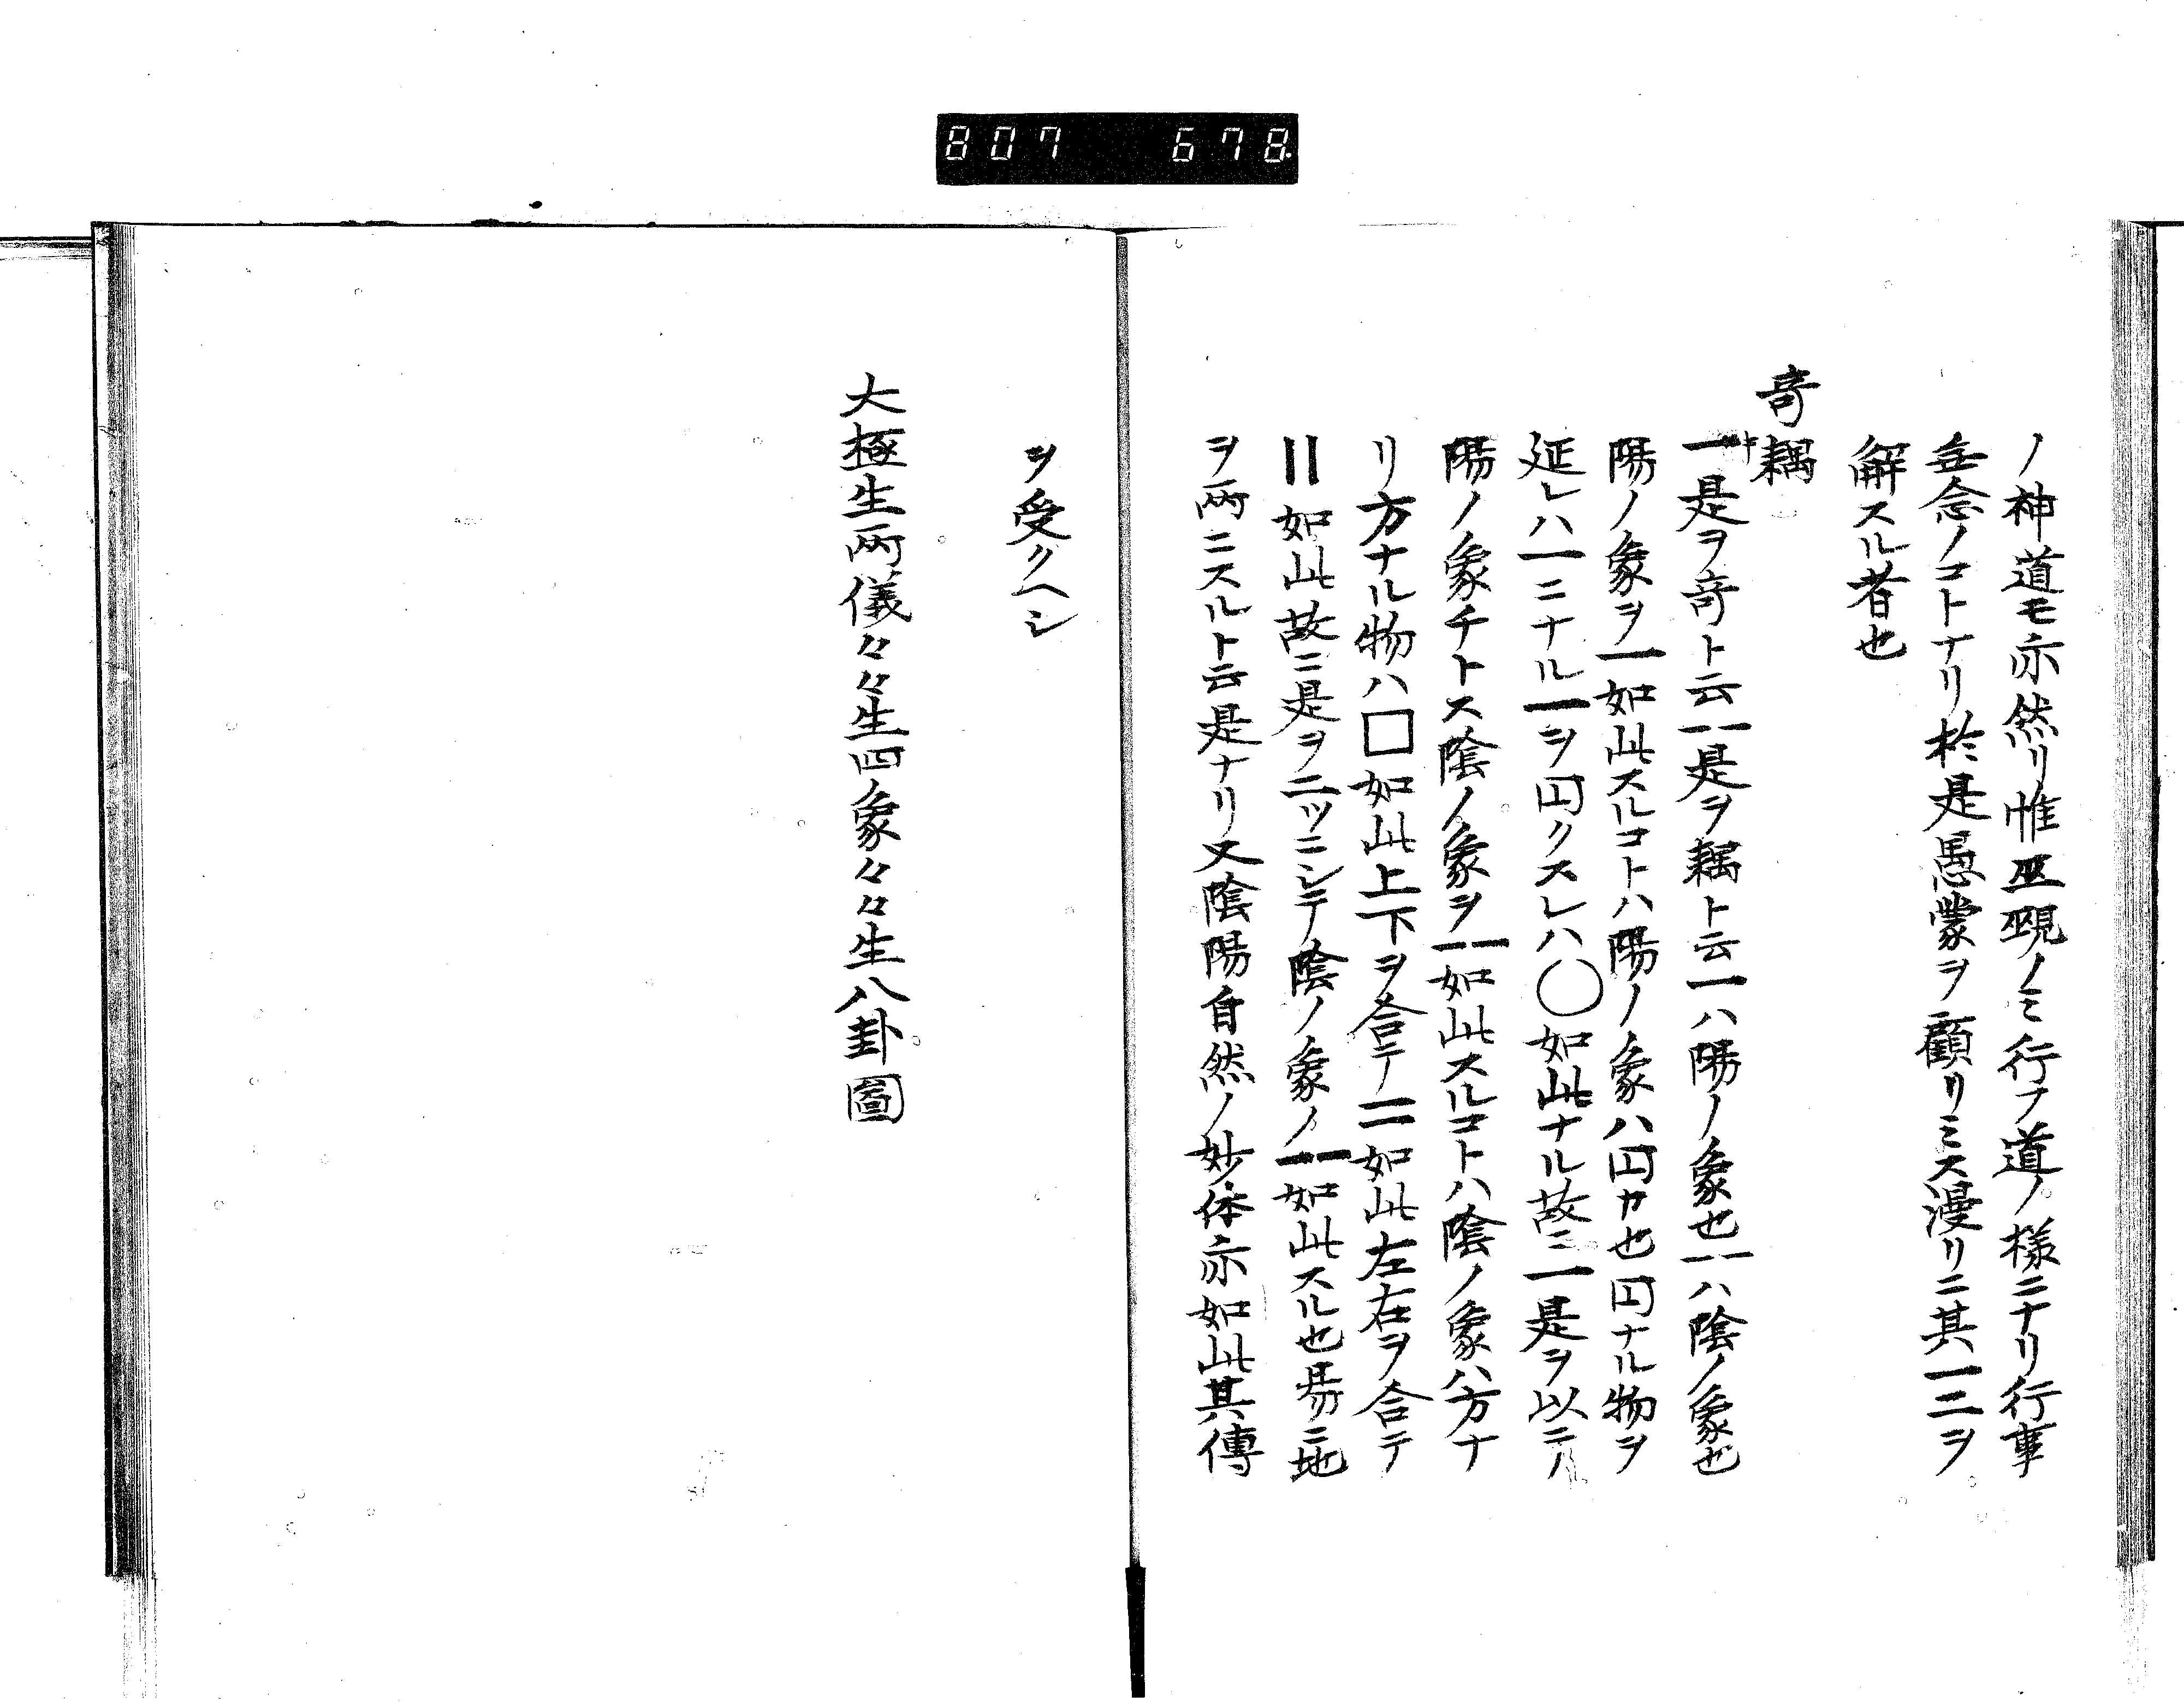 807 678.
ノ神道モ亦然リ惟巫覡ノミ行フ道ノ様ニナリ行事
無念ノコトナリ於是愚蒙ヲ顧リミス漫リニ其一二ヲ
解スル者也
奇耦
⚊是ヲ奇ト云⚋是ヲ耦ト云⚊ハ陽ノ象也⚋ハ陰ノ象也
陽ノ象ヲ⚊如此スルコトハ陽ノ象ハ円カ也円ナル物ヲ
延レハ⚊ニナル⚊ヲ円クスレハ〇如此ナル故ニ⚊是ヲ以テ
陽ノ象チトス陰ノ象ヲ⚋如此スルコトハ陰ノ象ハ方ナ
リ方ナル物ハ□如此上下ヲ合テ二如此左右ヲ合テ
〢如此故ニ是ヲ二ツニシテ陰ノ象ノ⚋如此スル也易ニ地
ヲ両ニスルト云是ナリ又陰陽自然ノ妙体亦如此其傳
ヲ受クヘシ
大極生両儀々々生四象々々生八卦圖